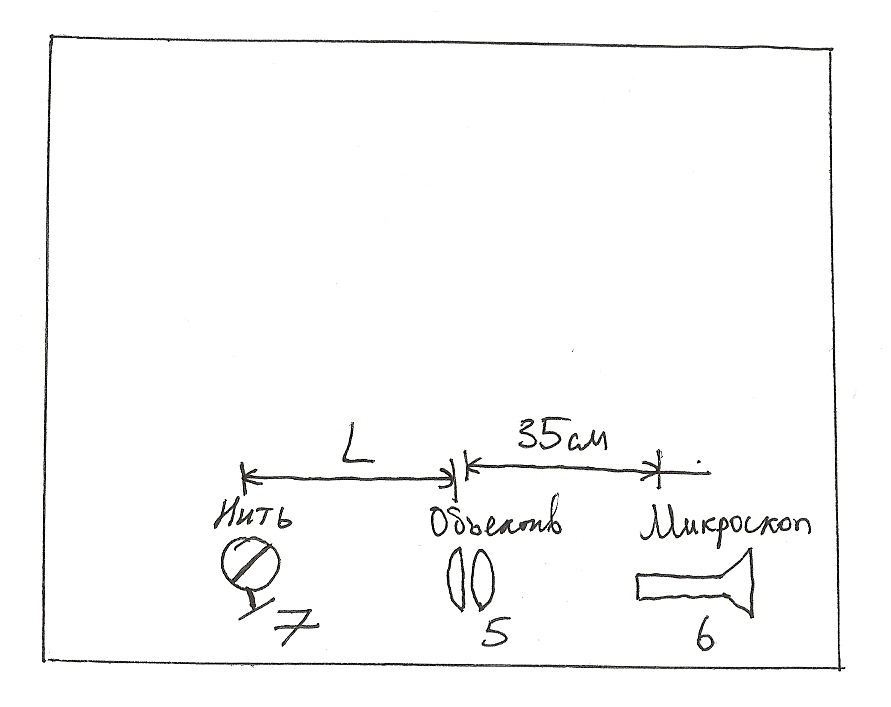 L 35см
Нить Объектив Микроскоп
7 5 6